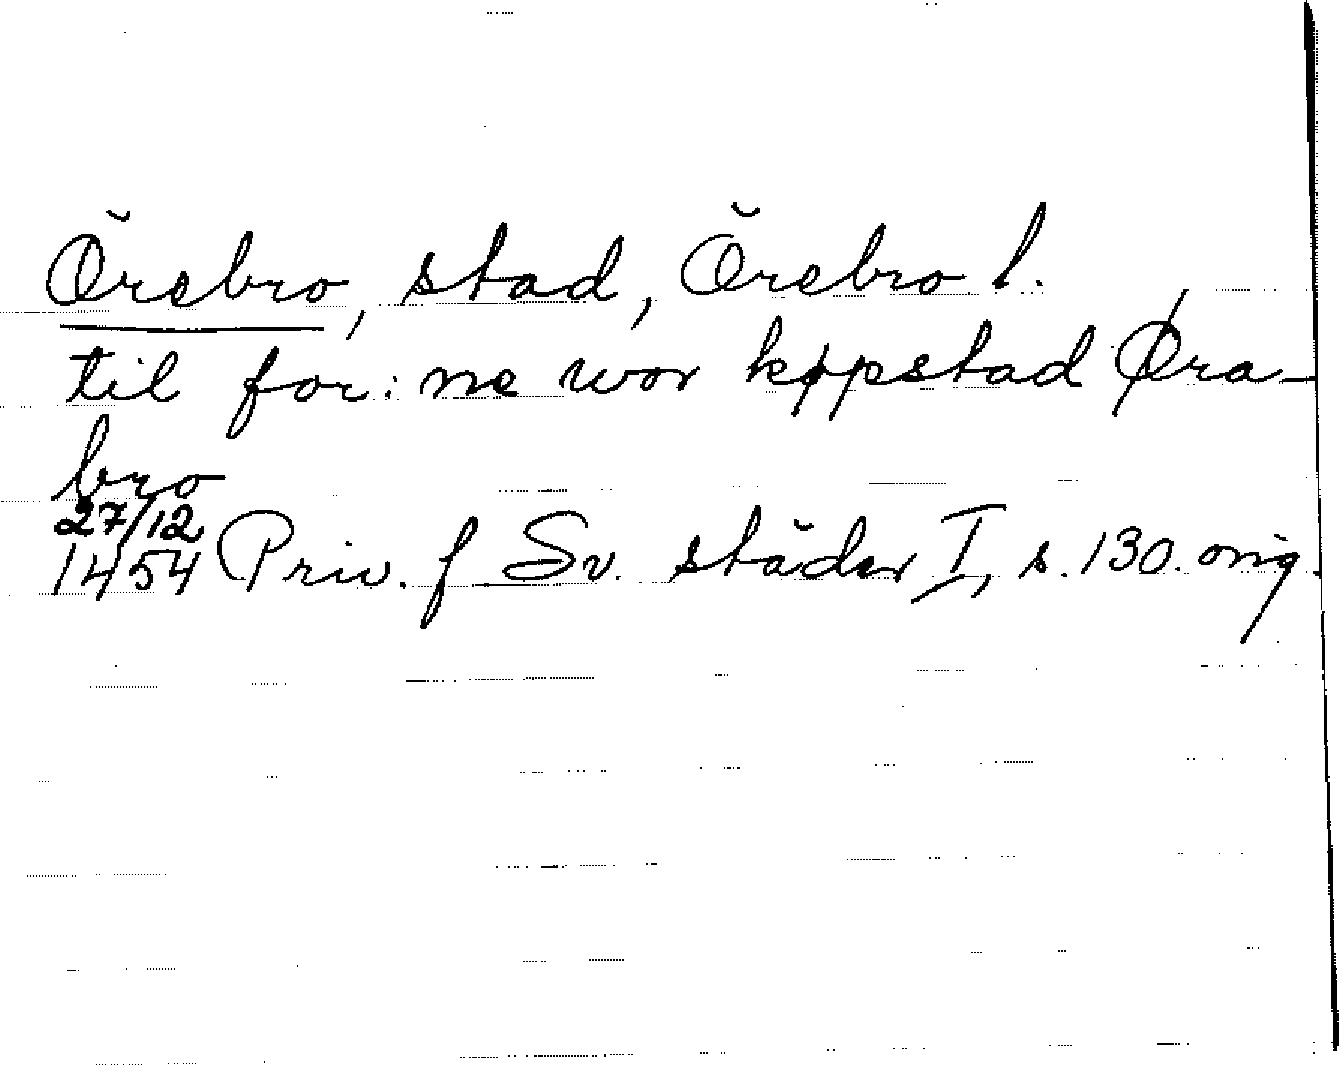 Örebro, stad, Örebro l.
til for: ne wor køpstad Øra-
bro
27/12
1454 Priv. f Sv. städer I, s. 130. orig.